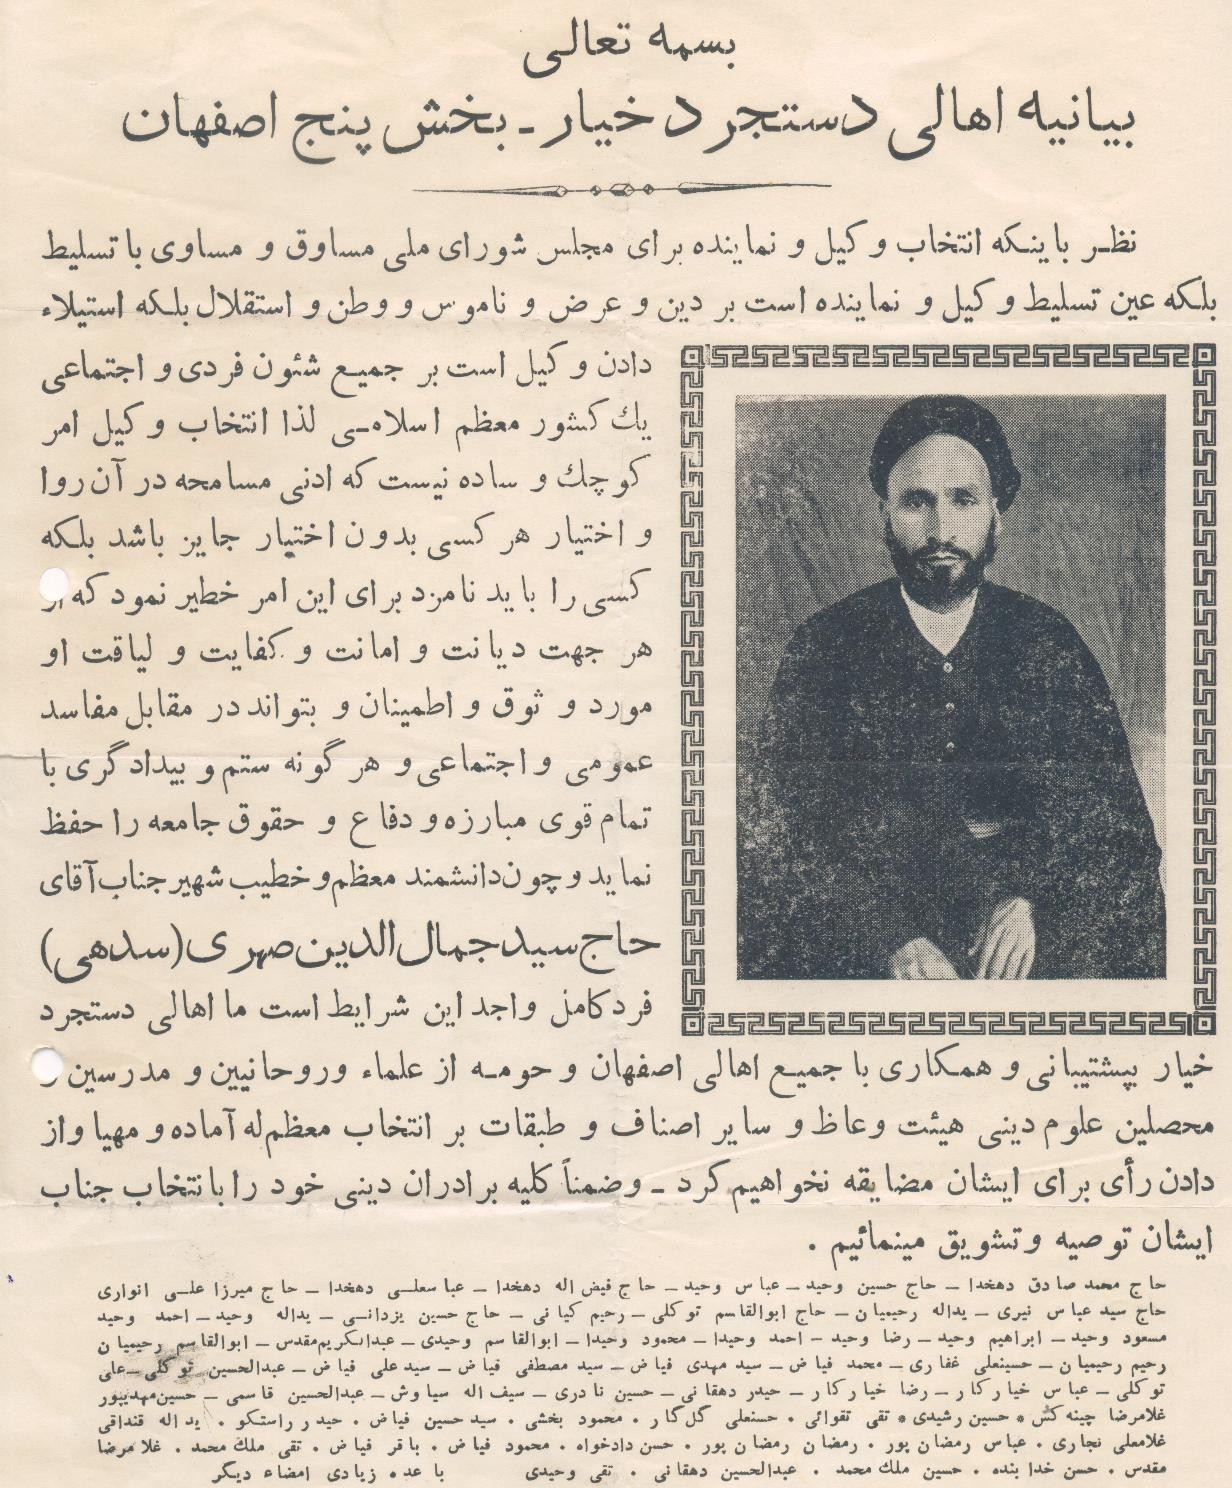 بسمه تعالی
بیانیه اهالی دستجرد خیار ـ بخش پنج اصفهان
نظر باینکه انتخاب وکیل و نماینده برای مجلس شورای ملی مساوق و مساوی با تسلیط
بلکه عین تسلیط وکیل و نماینده است بر دین و عرض و ناموس و وطن و استقلال بلکه استیلاء
دادن وکیل است بر جمیع شئون فردی و اجتماعی
یك کشور معظم اسلامی لذا انتخاب وکیل امر
کوچك و ساده نیست که ادنی مسامحه در آن روا
و اختیار هر کسی بدون اختیار جایز باشد بلکه
کسی را باید نامزد برای این امر خطیر نمود که از
هر جهت دیانت و امانت و کفایت و لیاقت او
مورد وثوق و اطمینان و بتواند در مقابل مفاسد
عمومی و اجتماعی و هر گونه ستم و بیدادگری با
تمام قوی مبارزه و دفاع و حقوق جامعه را حفظ
نماید و چون دانشمند معظم و خطیب شهیر جناب آقای
حاج سید جمال الدین صهری (سدهی)
فرد کامل واجد این شرایط است ما اهالی دستجرد
خیار بپشتیبانی و همکاری با جمیع اهالی اصفهان و حومه از علماء و روحانیین و مدرسین و
محصلین علوم دینی هیئت وعاظ و سایر اصناف و طبقات بر انتخاب معظم له آماده و مهیا و از
دادن رأی برای ایشان مضایقه نخواهیم کرد ـ وضمناً کلیه برادران دینی خود را بانتخاب جناب
ایشان توصیه و تشویق مینمائیم .
حاج محمد صادق دهخدا ـ حاج حسین وحید ـ عباس وحید ـ حاج فیض اله دهخدا ـ عباسعلی دهخدا ـ حاج میرزا علی انواری
حاج سید عباس نیری ـ یداله رحیمیان ـ حاج ابوالقاسم توکلی ـ رحیم کیانی ـ حاج حسین یزدانی ـ یداله وحید ـ احمد وحید
مسعود وحید ـ ابراهیم وحید ـ رضا وحید ـ احمد وحیدا ـ محمود وحیدا ـ ابوالقاسم وحیدی ـ عبدالکریم مقدس ـ ابوالقاسم رحیمیان
رحیم رحیمیان ـ حسینعلی غفاری ـ محمد فیاض ـ سید مهدی فیاض ـ سید مصطفی فیاض ـ سید علی فیاض ـ عبدالحسین توکلی ـ علی
توکلی ـ عباس خیارکار ـ رضا خیارکار ـ حیدر دهقانی ـ حسین نادری ـ سیف اله سیاوش ـ عبدالحسین قاسمی ـ حسین مهدیپور
غلامرضا چینه کش * حسین رشیدی * تقی تقوائی . حسنعلی گل گار . محمود بخشی . سید حسین فیاض . حیدر راستکو . یداله قنداقی
غلامعلی نجاری . عباس رمضان پور . رمضان رمضان پور . حسن دادخواه . محمود فیاض . باقر فیاض . تقی ملك محمد . غلامرضا
مقدس . حسن خدابنده . حسین ملك محمد . عبدالحسین دهقانی . تقی وحیدی با عده زیادی امضاء دیگر